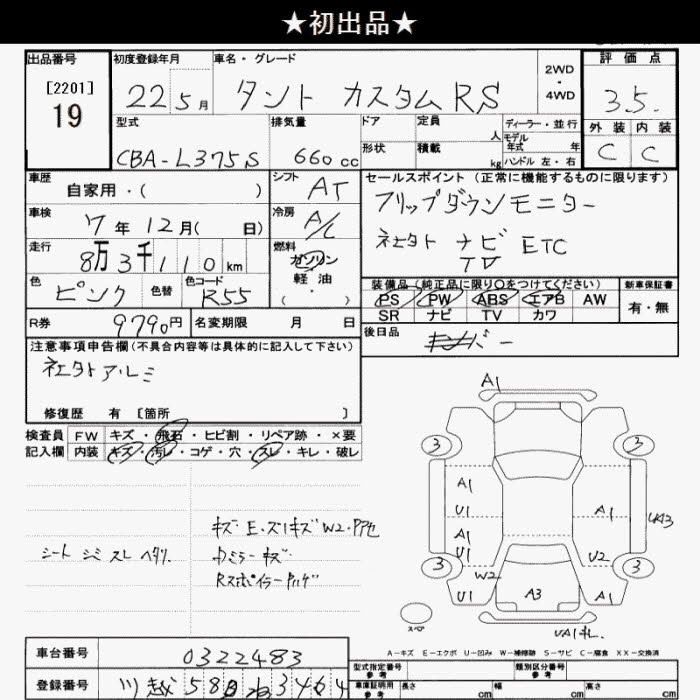 ★初出品★
出品番号 初度登録年月 車名・グレード 2WD ・ 4WD 評価点
[2201] 19 22 5月 タント カスタムRS 3.5.
型式 排気量 ドア 定員 人 ディーラー・並行 外装 内装
形状 積載 kg モデル年式 年 ハンドル 左・右
CBA-L375S 660cc C C
車歴 自家用・( ) シフト AT セールスポイント (正常に機能するものに限ります)
車検 7年12月( 日) 冷房 A/C フリップダウンモニター
走行 8万3千110km 燃料 ガソリン 軽油 ( ・ ) 社外 ナビ ETC
TV
色 ピンク 色替 色コード R55 装備品 (純正品に限り○をつけてください) 新車保証書
PS PW ABS エアB AW 有・無
SR ナビ TV カワ
R券 9790円 名変期限 月 日 後日品
注意事項申告欄(不具合内容等は具体的に記入して下さい)
社外アルミ
修復歴 有 [箇所 ]
検査員 FW キズ・飛石・ヒビ割・リペア跡・×要
記入欄 内装 キズ・汚レ・コゲ・穴・スレ・キレ・破レ
シート シミ スレ ヘタリ.
Rスポイラー
A1
3 3
A1
U1 A1 UA3
A1
U1 U2
3 3
W2
U1 A3 A1
スペア
A-キズ E-エクボ U-凹み W-補修跡 S-サビ C-腐食 XX-交換済
車台番号 0322483
型式指定番号 参考 類別区分番号 参考
登録番号 川越 58
車庫証明用 参考 長さ cm 幅 cm 高さ cm